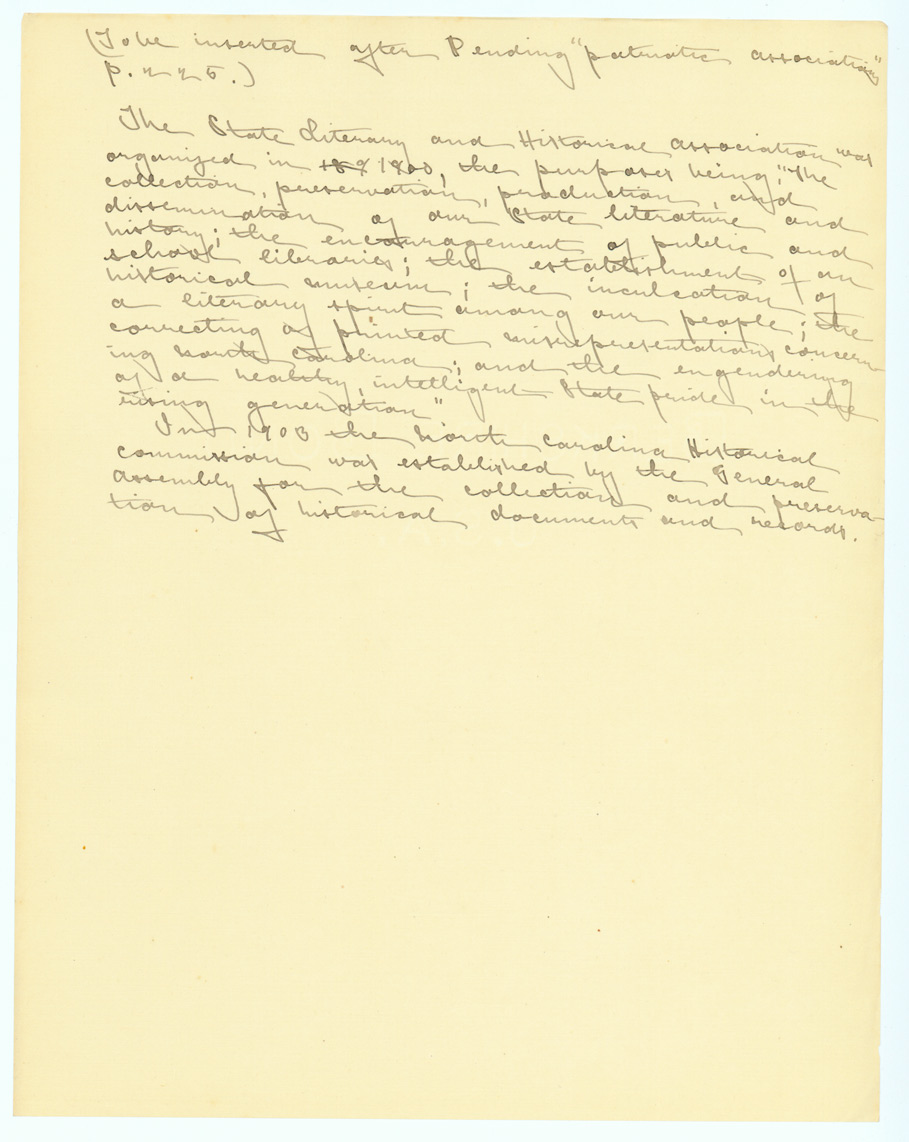 (To be inserted after P ending "patriotic associations"
p. 225.)
The State Literary and Historical association was
organized in 1900, the purposes being, "The
collection, preservation, production, and
dissemination of our State literature and
history; the encouragement of public and
school libraries; the establishment of an
historical museum; the inculcation of
a literary spirit among our people; the
correcting of printed misrepresentations concern-
ing North Carolina; and the engendering
of a healthy, intelligent State pride in the
rising generation"
In 1903 the North Carolina Historical
commission was established by the General
assembly for the collection and preserva-
tion of historical documents and records.